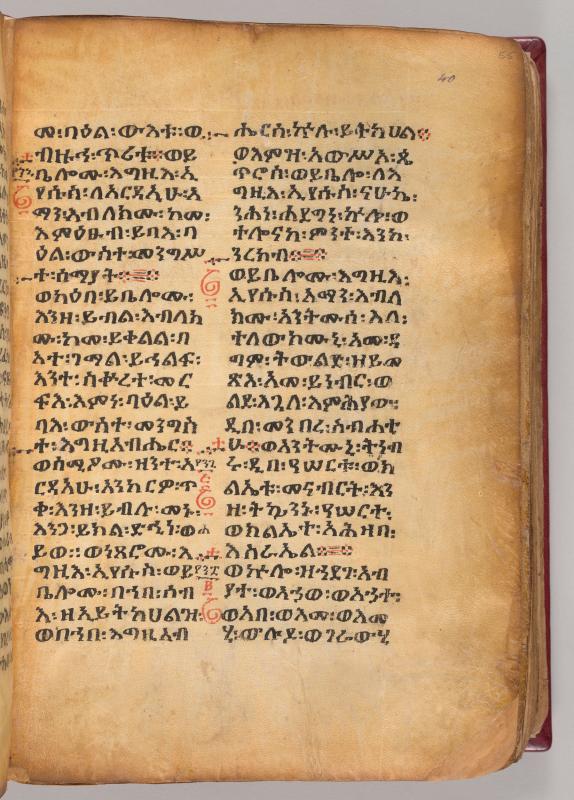 መ፡ባዕል፡ውእቱ፡ወ
ብዙኅ፡ጥሪቱ። ወይ
ቤሎሙ፡እግዚእ፡ኢ
የሱስ፡ለአርዳኢሁ፡አ
ማን፡እብለክሙ፡ከመ፡
እምዕፁብ፡ይባእ፡ባ
ዕል፡ውስተ፡መንግሥ
ተ፡ሰማያት።
ወካዕበ፡ይቤሎሙ፡
እንዘ፡ይብል፡እብለክ
ሙ፡ከመ፡ይቀልል፡ባ
እተ፡ገማል፡ይኅልፍ፡
እንተ፡ስቍረተ፡መር
ፍእ፡እምነ፡ባዕል፡ይ
ባእ፡ውስተ፡መንግስ
ተ፡እግዚአብሔር።
ወሰሚዖሙ፡ዘንተ፡አ
ርዳኢሁ፡አንከርዎ፡ጥ
ቀ፡እንዘ፡ይብሉ፡መኑ፡
እንጋ፡ይክል፡ድኂነ፡ወሐ
ይወ። ወነጸሮሙ፡እ
ግዚእ፡ኢየሱስ፡ወይ
ቤሎሙ፡በኀበ፡ሰብ
እ፡ዘኢይትከሀል፡ዝ፡
ወበኀበ፡እግዚአብ
40
ሔርሰ፡ኵሉ፡ይትከሀል።
ወእምዝ፡አውሥአ፡ጴ
ጥሮስ፡ወይቤሎ፡ለእ
ግዚእ፡ኢየሱስ፡ናሁኬ፡
ንሕነ፡ሐደግነ፡ኵሎ፡ወ
ተሎናከ፡ምንተ፡እንከ፡
ንረክብ።
ወይቤሎሙ፡እግዚእ፡
ኢየሱስ፡አማን፡እብለ
ክሙ፡አንትሙሰ፡እለ፡
ተለውክሙኒ፡አመ፡ዳ
ግም፡ትውልድ፡ዘይመ
ጽእ፡አመ፡ይነብር፡ወ
ልደ፡እጓለ፡እምሕያው፡
ዲበ፡መንበረ፡ስብሐተ
ሁ። ወአንትሙኒ፡ትነብ
ሩ፡ዲበ፡ዓሠርቱ፡ወክ
ልኤቱ፡መናብርት፡እን
ዘ፡ትኴንኑ፡ዓሠርተ፡
ወክልኤተ፡አሕዛበ፡
እስራኤል።
ወኵሉ፡ዘኀደገ፡አብ
ያተ፡ወአኃወ፡ወአኃተ፡
ወአበ፡ወእመ፡ወእመ
ሂ፡ውሉደ፡ወገራውሂ